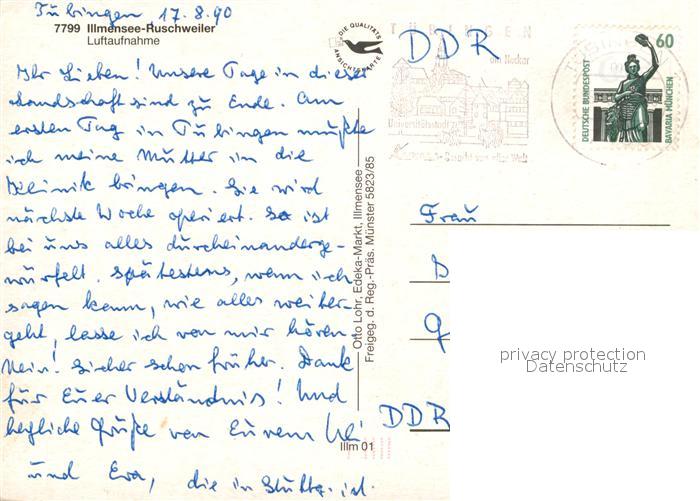 Tübingen 17.8.90
7799 Illmensee-Ruschweiler
Luftaufnahme
DIE QUALITÄTS
ANSICHTSKARTE
Ihr Lieben! Unsere Tage in dieser
Landschaft sind zu Ende. Am
ersten Tag in Tübingen mußte
ich meine Mutter in die
Klinik bringen. Sie wird
nächste Woche operiert. So ist
bei uns alles durcheinanderge-
würfelt. Spätestens, wenn ich
sagen kann, wie alles weiter-
geht, lasse ich von mir hören.
Nein! Sicher schon früher. Dank
für Euer Verständnis! Und
herzliche Grüße von Eurem Uli
und Eva, die in Stuttg. ist.
Otto Lohr, Edeka-Markt, Illmensee
Freigeg. d. Reg.-Präs. Münster 5823/85
Illm 01
TÜBINGEN
am Neckar
Universitätsstadt
DDR
60
DEUTSCHE BUNDESPOST
BAVARIA MÜNCHEN
Frau
D
G
DDR
privacy protection
Datenschutz